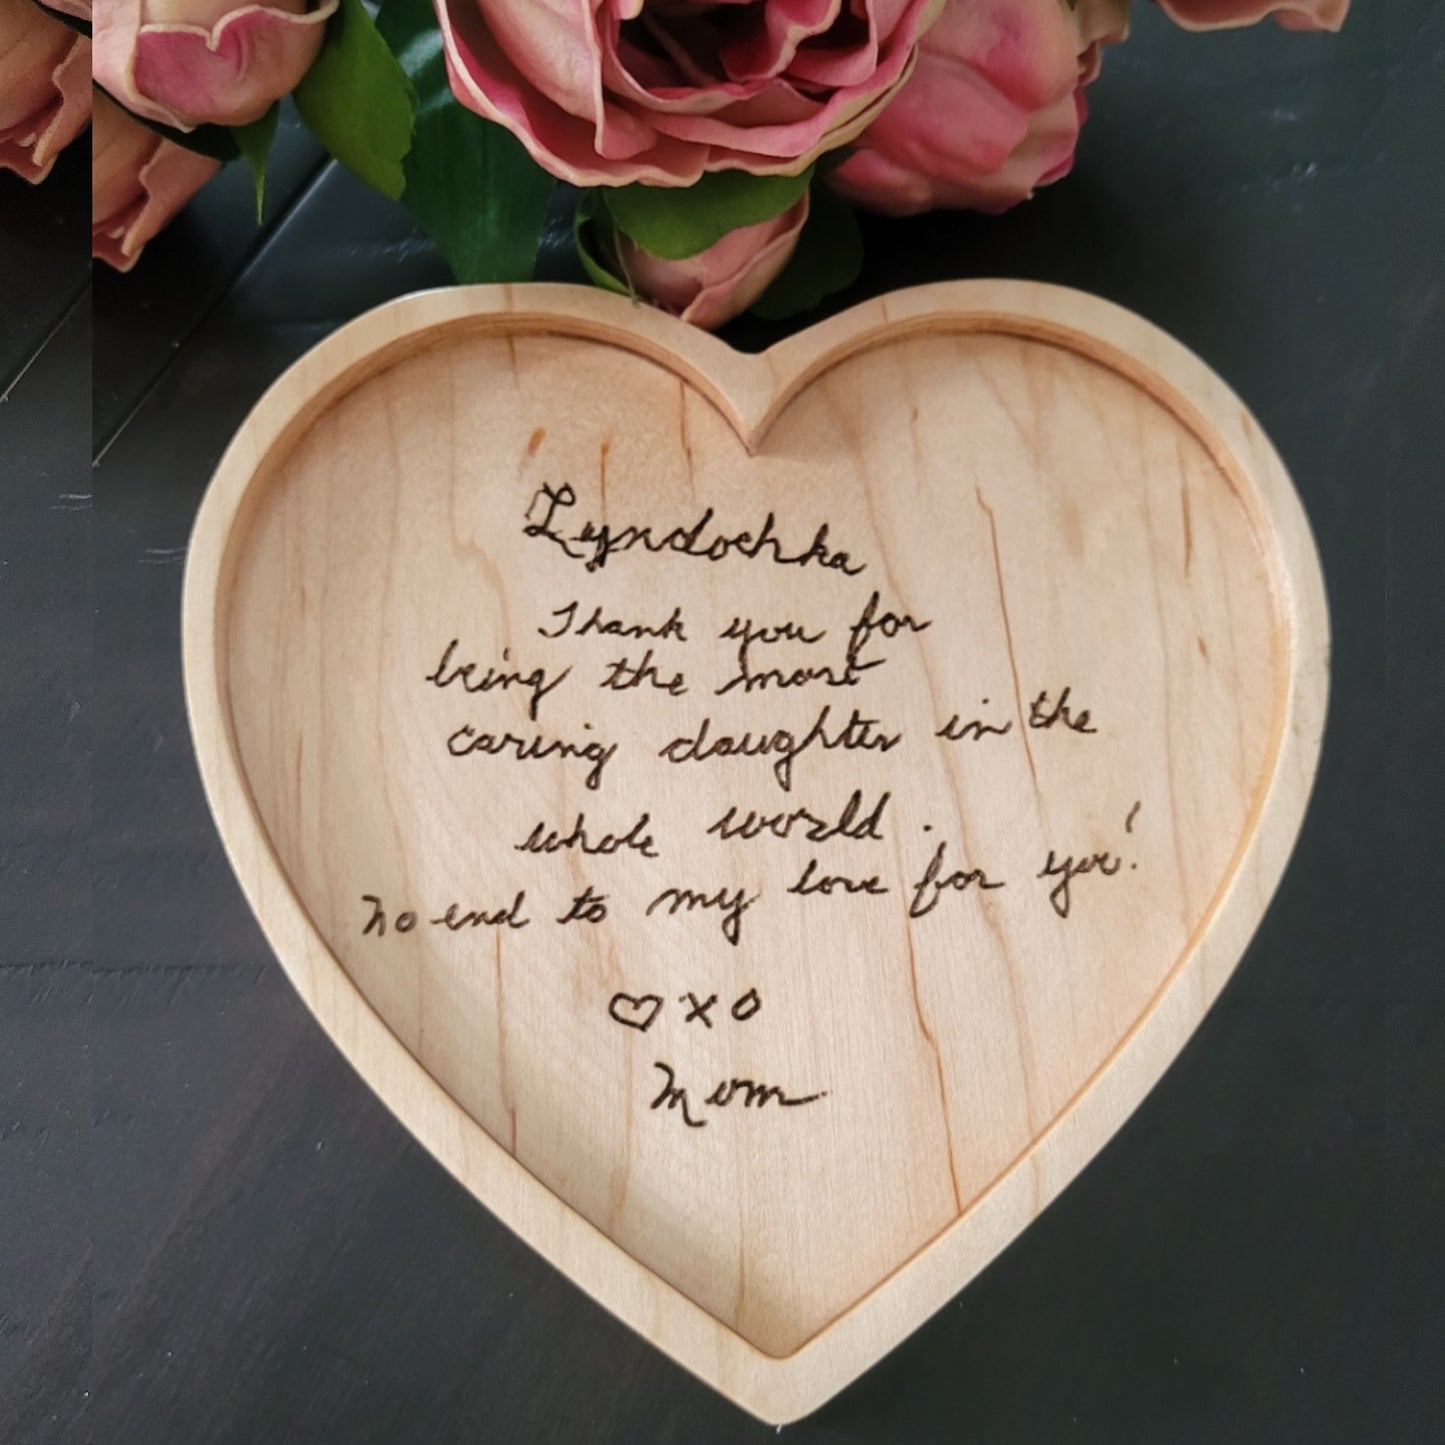 Lyndochka
Thank you for
being the most
caring daughter in the
whole world.
No end to my love for you!
♡ x o
Mom